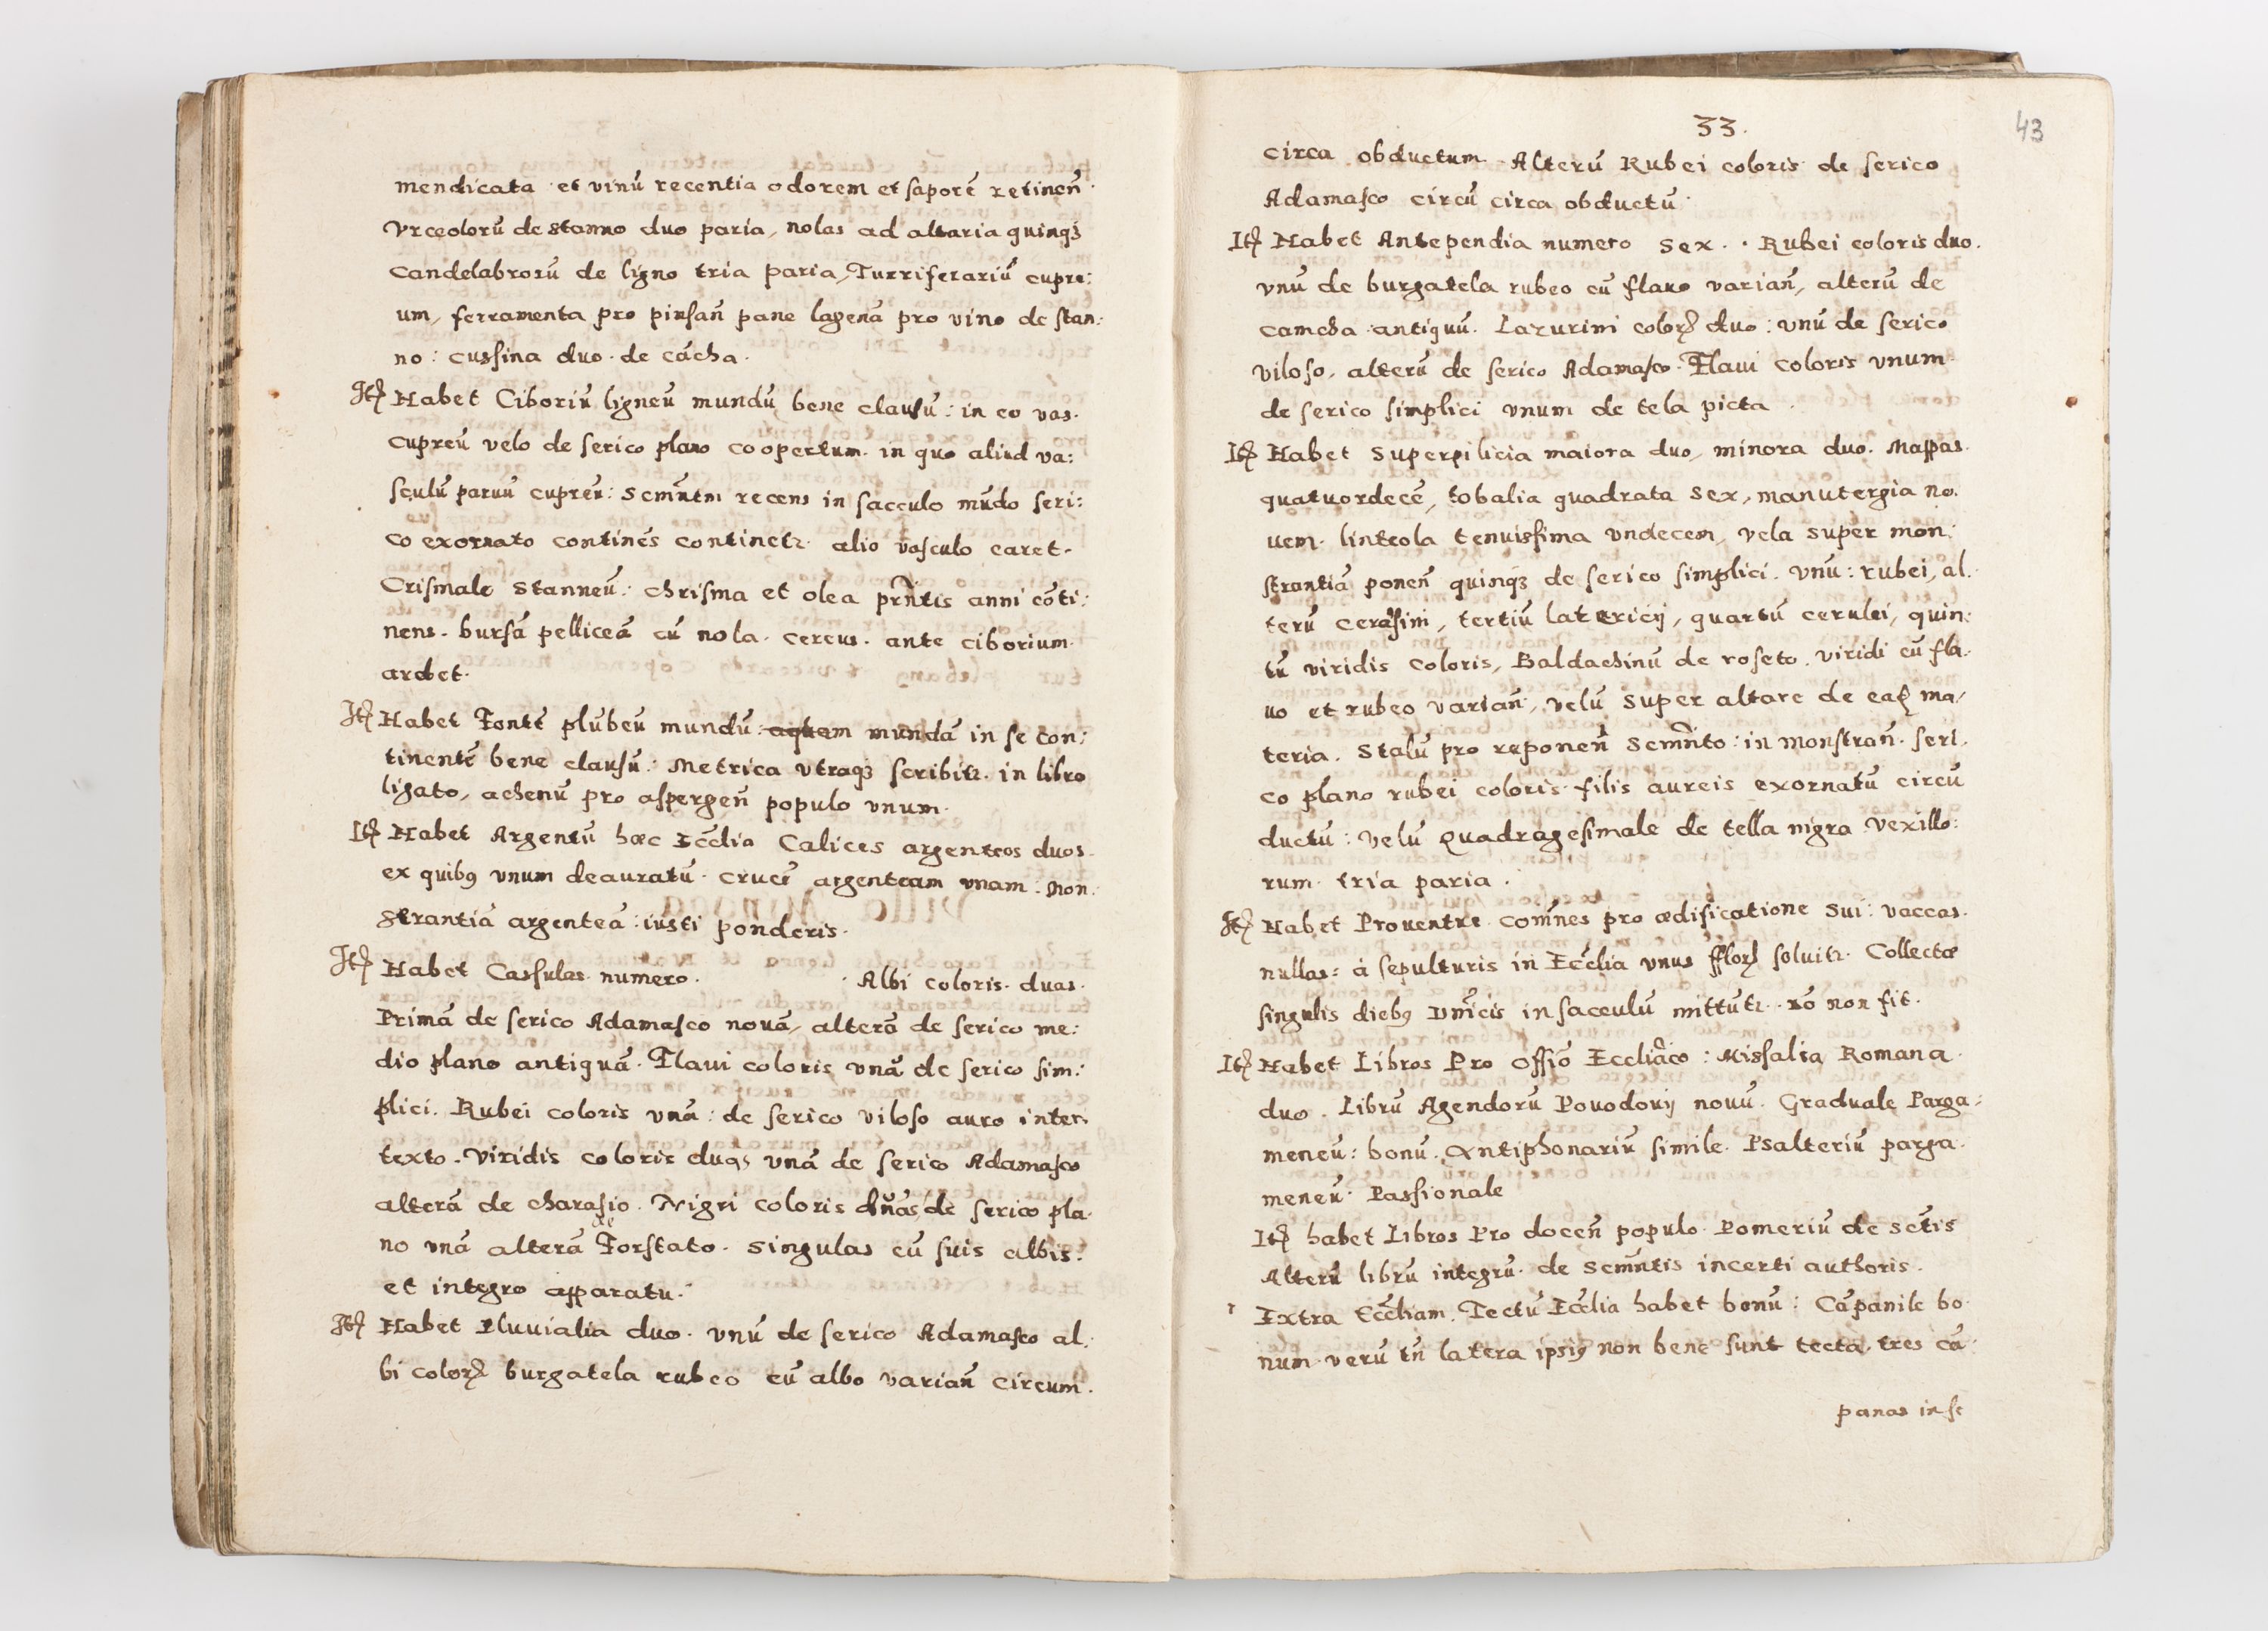 mendicata et vinũ recentia odorem et saporẽ retinen̄.
Vrceolorũ de stanno duo paria, nolas ad altaria quinqȝ
Candelabrorũ de ligno tria paria, Turriferariũ cupre:
um, ferramenta pro pinsan̄ pane lagenã pro vino de stan:
no: cussina duo de cãcha.
Itȝ Habet Ciboriũ ligneũ mundũ bene clausũ: in eo vas.
cupreũ velo de serico plano coopertum. in quo aliud va:
sculũ paruũ cupreũ: Scm̃ntm recens in sacculo mũdo seri:
co exornato continẽs continetr. alio vasculo caret.
Crismale stanneũ: chrisma et olea prñtis anni cõti:
nens. bursã pelliceã cũ nola. cereus. ante ciborium
ardet.
Itȝ Habet Fontẽ plũbeũ mundũ: aquam mundã in se con:
tinentẽ bene clausũ: Metrica vtraqȝ scribitr. in libro
ligato, achenũ pro aspergen̄ populo vnum.
Itȝ Habet Argentũ hæc Eccl̃ia Calices argenteos duos.
ex quibȝ vnum deauratũ. crucẽ argenteam vnam: Mon.
strantiã argenteã: iusti ponderis.
Itȝ Habet Cassulas numero. Albi coloris. duas.
Primã de serico Adamasco nouã, alterã de serico me:
dio plano antiquã. Flaui coloris vnã de serico sim:
plici. Rubei coloris vnã: de serico viloso auro inter.
texto. Viridis coloris duas vnã de serico Adamasco
alterã de charasio. Nigri coloris duas de serico pla.
no vnã alterã de Forstato. Singulas cũ suis albis:
et integro apparatu.
Itȝ Habet Pluuialia duo. vnũ de serico Adamasco al.
bi colorȝ burgatela rubeo cũ albo varian̄ circum.
33.
43
circa obductum. Alterũ Rubei coloris de serico
Adamasco circũ circa obductũ.
Itȝ Habet Antependia numero sex. Rubei coloris duo.
vnũ de burgatela rubeo cũ flauo varian̄, alterũ de
camcha antiquũ. Lazurini colorȝ duo: vnũ de serico
viloso, alterũ de serico Adamasco. Flaui coloris vnum
de serico simplici vnum de tela picta.
Itȝ Habet Superpilicia maiora duo, minora duo. Mappas.
quatuordecẽ, tobalia quadrata sex, manutergia no.
uem. linteola tenuissima vndecem, vela super mon:
strantiã ponen̄ quinqȝ de serico simplici. vnũ: rubei, al.
terũ cerasini, tertiũ latericij, quartũ cerulei, quin:
tũ viridis coloris, Baldachinũ de roseto. viridi cũ fla.
uo et rubeo varian̄, velũ super altare de eaȝ ma,
teria. Stalũ pro reponen̄ Scm̃nto: in monstran̄. seri.
co plano rubei coloris filis aureis exornatũ circũ
ductũ: velũ Quadragesimale de tella nigra. Vexillo:
rum. tria paria.
Itȝ Habet Prouentus com̃nes pro ædificatione sui: vaccas.
nullas: à sepulturis in Eccl̃ia vnus fflorȝ soluitr. Collectæ
singulis diebȝ Dnĩcis in sacculũ mittũtr. Rõ non fit.
Itȝ Habet Libros Pro offiõ Eccliãco: Missalia Romana
duo. Librũ Agendorũ Pouodouij nouũ. Graduale Parga:
meneũ: bonũ. Antiphonariũ simile. Psalteriũ parga.
meneũ. Passionale
Itȝ habet Libros Pro docen̄ populo. Pomeriũ de Sctĩs
Alterũ librũ integrũ. de Scm̃ntis incerti authoris.
Extra Eccl̃iam. Tectũ Eccl̃ia habet bonũ: Cãpanile bo.
num. verũ tñ latera ipsiȝ non bene sunt tecta. tres cã:
panas in se